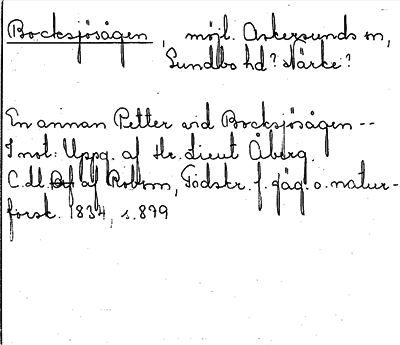 Bocksjösågen, möjl. Askersunds sn,
Sundbo hd? Närke?
En annan Petter vid Bocksjösågen --
I not: Uppg. af Hr. Lieut Åberg.
C.U. af Robson, Tidskr. f. jäg. o. natur-
forsk. 1834, s. 899